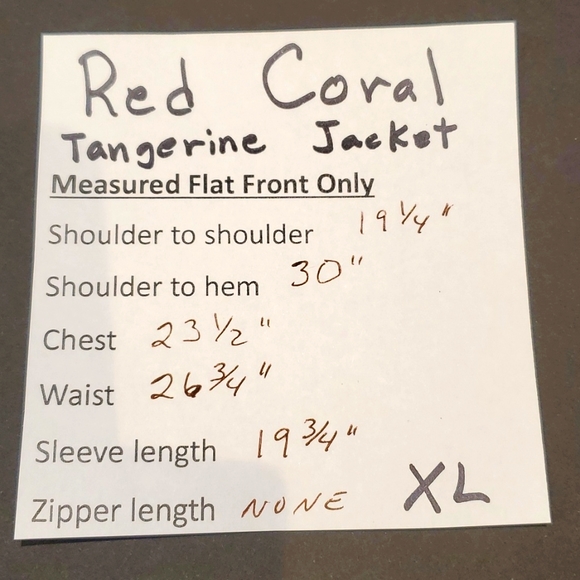 Red Coral
Tangerine Jacket
Measured Flat Front Only
Shoulder to shoulder 19 1/4"
Shoulder to hem 30"
Chest 23 1/2"
Waist 26 3/4"
Sleeve length 19 3/4"
Zipper length NONE XL